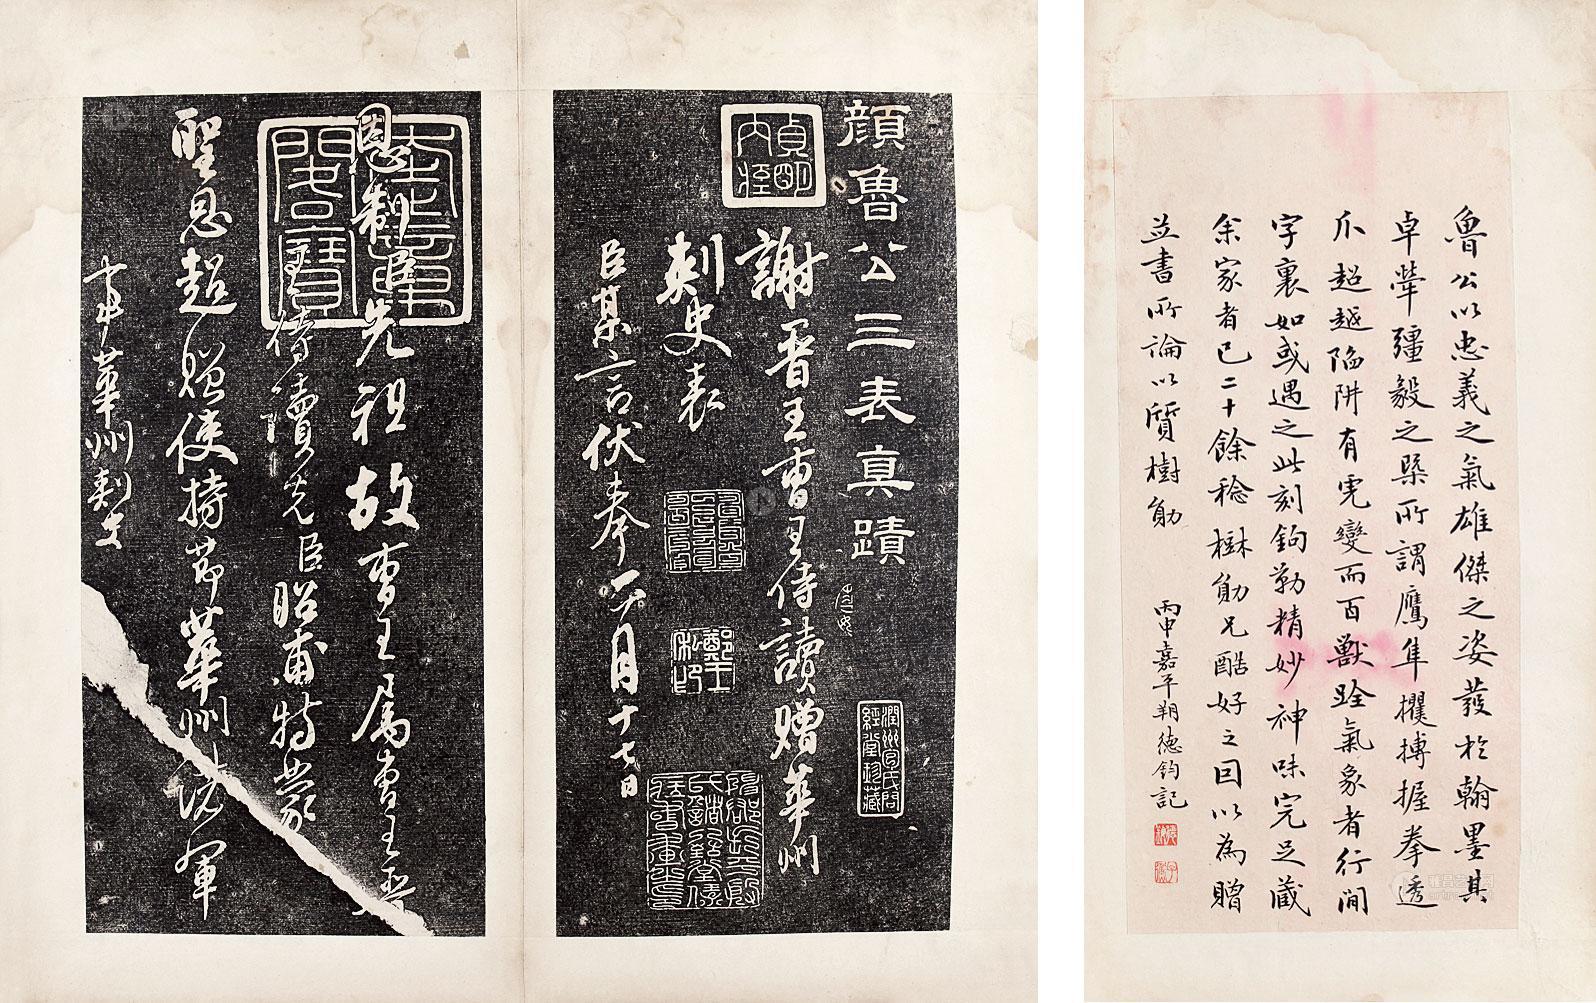 魯公以忠義之氣雄傑之姿發於翰墨其
卓犖彊毅之槩所謂鷹隼攫搏握拳透
爪超越陷阱有兕變而百獸跧氣象者行間
字裏如或遇之此刻鉤勒精妙神味完足藏
余家者已二十餘稔樹勛兄酷好之回以為贈
並書所論以質樹勛
丙申嘉平朔德鈞記
顏魯公三表真蹟
謝晉王曹王侍讀贈華州
刺史表
臣某言伏奉一月十七日
恩制臣先祖故曹王屬曹王
王侍讀先臣昭甫特蒙
聖恩超贈使持節華州諸軍
事華州刺史